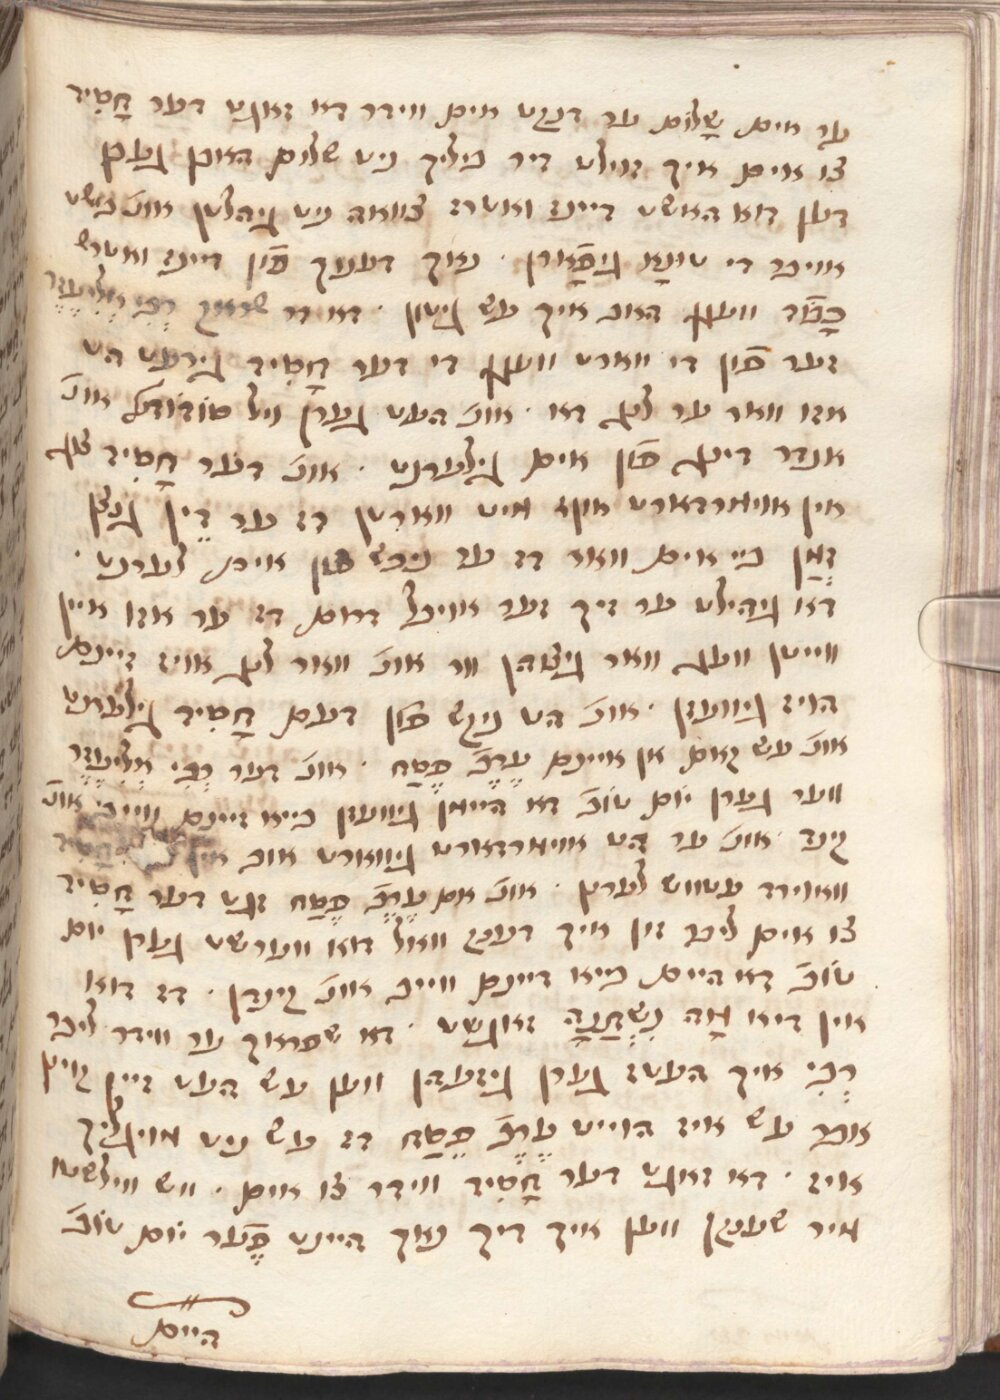 ער אים שָלוֹם ער דנקט אים ווידר דא זאגט דער חָסִיד
צו אים איך זוילט דיר ביליך ניט שלום האבן געבן
דען דוא האשט דיינז ואטרז צוואה ניט גיהלטן אונ' בישט
אוויבר די טונָא גיפֿארן . נאך דענוך פֿון דיינז ואטרש
כָּבֿוֹד וועגן האב איך עש גיטון . דא דר שראק רְבִּי אֱלִיעֶזֶר
זער פֿון די ווארט וועגן די דער חָסִיד גירעט הט
אזו וואר ער לנג דא . אונ' העט גערן ויל סוֹדוֹת אונ'
אנדר דינג פֿון אים גילערנט . אונ' דער חָסִיד צוג
אין אוימרדארט אונ' מיט ווארטן דז ער דֵין גנצן
זְמַן בײַ אים וואר דז ער ניכש פֿון אירם לערנט .
דא גיהילט ער זיך זער אוויבל דרום דז ער אזו איין
ווייטן וועג וואר גיצוהן וור אונ' וואר לנג אויז זיינם
הויז גיוועזן . אונ' הט ניקש פֿון דעם חָסִיד גילערנט
אונ' עש קאם אן איינם עֶרֶבֿ פֶּסַח . אונ' דער רְבִּי אֱלִיעֶזֶר
ווער גערן יוֹם טוֹבֿ דא היימן גיוועזן בייא זיינם ווייב אונ'
קינד . אונ' ער הט אוימרדארט גיווארט אוב
וואוירד עטווש לערנן . אונ' אם עֶרֶבֿ פֶּסַח זגט דער חָסִיד
צו אים ליבר זון איך דענק וואל דוא ווערשט גערן יוֹם
טוֹבֿ דא היים בייא דיינם ווייב אונ' קינדן . דז דוא
אין דיא מַה נִשְתַּנָה זאגשט . דא שפראך ער ווידר ליבר
רְבִּי איך העטז גערן גיזעהן ווען עש העט זיין קוינן
אבר עש איז הוייט עֶרֶבֿ פֶּסַח דז עש ניט מויגליך
איז . דא זאגט דער חָסִיד ווידר צו אים . ווש ווילשטו
מיר שענקן ווען איך דיך נאך היינט פֿער יוֹם טוֹבֿ
היים